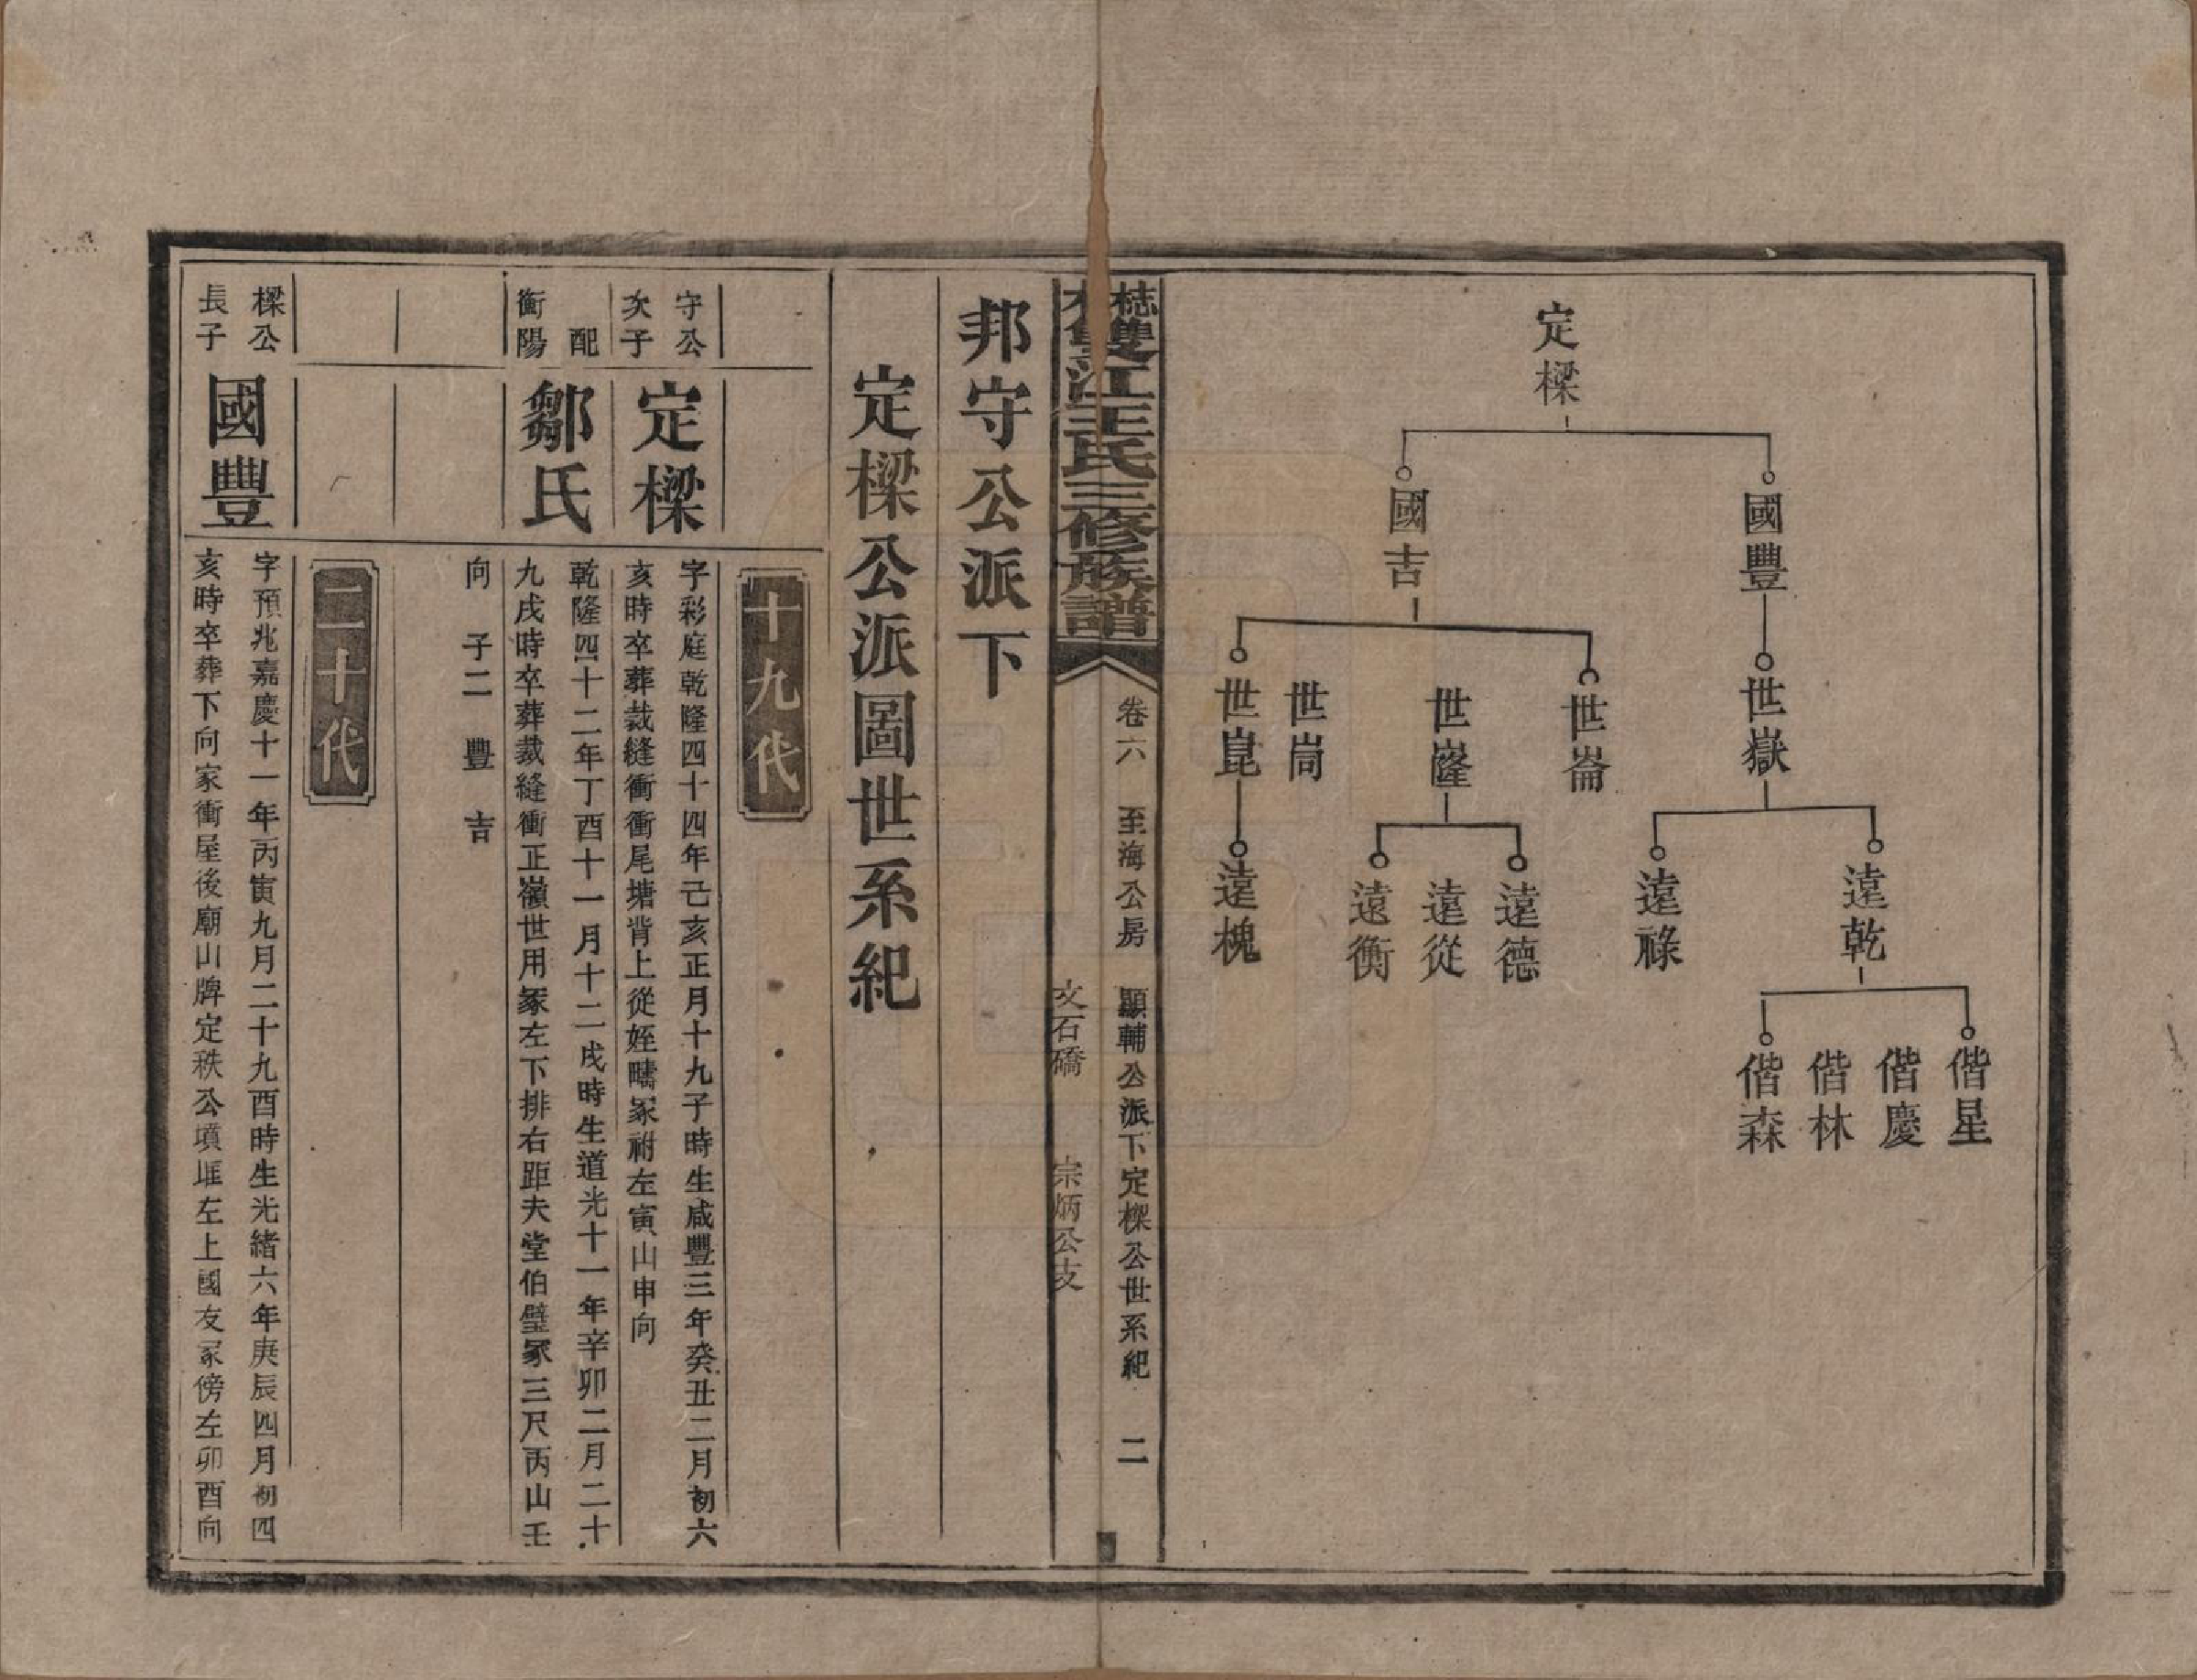 定樑
國豐
國吉
世嶽
世崙
世嶐
世峝
世崑
遠乾
遠祿
遠德
遠從
遠衡
遠槐
偕星
偕慶
偕林
偕森
雙江王氏三修族譜
卷六 至海公房 顯輔公派下定樑公世系紀 二
文石磱 宗炳公支
邦守公派下
定樑公派圖世系紀
十九代
守公
次子
定樑
字彩庭乾隆四十四年己亥正月十九子時生咸豐三年癸丑二月初六
亥時卒葬裁縫衝衝尾塘背上從姪疇冢祔左寅山申向
配
衡陽
鄒氏
乾隆四十二年丁酉十一月十二戌時生道光十一年辛卯二月二十
九戌時卒葬裁縫衝正嶺世用冢左下排右距夫堂伯璧冢三尺丙山壬
向 子二 豐 吉
二十代
樑公
長子
國豐
字預兆嘉慶十一年丙寅九月二十九酉時生光緒六年庚辰四月初四
亥時卒葬下向家衝屋後廟山牌定秩公墳堐左上國友冢傍左卯酉向